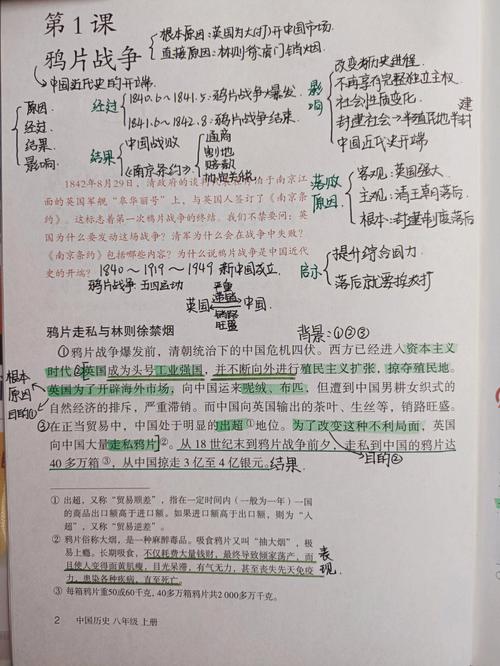 第1课
鸦片战争
根本原因:英国为大(打)开中国市场.
直接原因:林则徐虎门销烟.
中国近代史的开端
原因
经过
结果
影响
经过
1840.6~1841.5:鸦片战争爆发.
1841.6~1842.8:鸦片战争结束.
结果
中国战败
《南京条约》
通商
割地
赔款
协定关税
影响
改变历史进程
不再享有完整独立主权
社会性质变化
封建社会→半殖民地半封建
中国近代史开端
落败原因
客观:英国强大
主观:清王朝落后
根本:封建制度落后
启示
提升综合国力
落后就要挨打
1842年8月29日,清政府的谈判代表在停泊于南京江
面的英国军舰“皋华丽号”上,与英国人签订了《南京条
约》。这标志着第一次鸦片战争的终结。我们不禁要问:英
国为什么要发动这场战争?清军为什么会在战争中失败?
《南京条约》包括哪些内容?为什么说鸦片战争是中国近代
史的开端?
1840~1919~1949 新中国成立.
鸦片战争 五四运动
英国
严重
滞销
销路
旺盛
中国.
鸦片走私与林则徐禁烟
背景:①②③
①鸦片战争爆发前,清朝统治下的中国危机四伏。西方已经进入资本主义
时代,②英国成为头号工业强国,并不断向外进行殖民主义扩张,掠夺殖民地。
英国为了开辟海外市场,向中国运来呢绒、布匹,但遭到中国男耕女织式的
自然经济的排斥,严重滞销。而中国向英国输出的茶叶、生丝等,销路旺盛。
③在正当贸易中,中国处于明显的出超①地位。为了改变这种不利局面,英国
向中国大量走私鸦片②。从18世纪末到鸦片战争前夕,走私到中国的鸦片达
40多万箱③,从中国掠走3亿至4亿银元。结果.
根本
原因
目的①
目的②
① 出超,又称“贸易顺差”,指在一定时间内(一般为一年)一国
的商品出口额高于进口额。如果进口额高于出口额,则为“入
超”,又称“贸易逆差”。
② 鸦片俗称大烟,是一种麻醉毒品。吸食鸦片又叫“抽大烟”,极
易上瘾。长期吸食,不仅耗费大量钱财,最终导致倾家荡产,而
且使人变得面黄肌瘦,目光呆滞,有气无力,甚至丧失先天免疫
力,患染各种疾病,直至死亡。
表现.
③ 每箱鸦片重50或60千克,40多万箱鸦片共2 000多万千克。
2 中国历史 八年级 上册